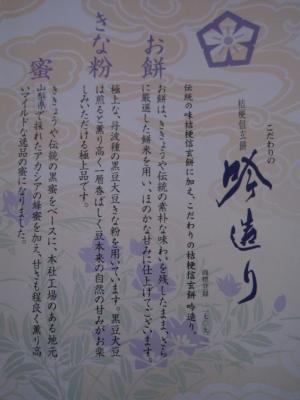 こだわりの
桔梗信玄餅
吟造り
商標登録
伝統の味桔梗信玄餅に加え、こだわりの桔梗信玄餅吟造り。
お餅
お餅は、ききょうや伝統の素朴な味わいを残したまま、さらに
厳選した餅米を用い、ほのかな甘みに仕上げてございます。
きな粉
極上な、丹波種の黒豆大豆きな粉を用いています。黒豆大豆
は煎ると薫り高く一層香ばしく豆本来の自然の甘みがお楽
しみいただける極上品です。
蜜
ききょうや伝統の黒蜜をベースに、本社工場のある地元
山梨県で採れたアカシアの蜂蜜を加え、甘さも程良く薫り高
いマイルドな逸品の蜜になりました。